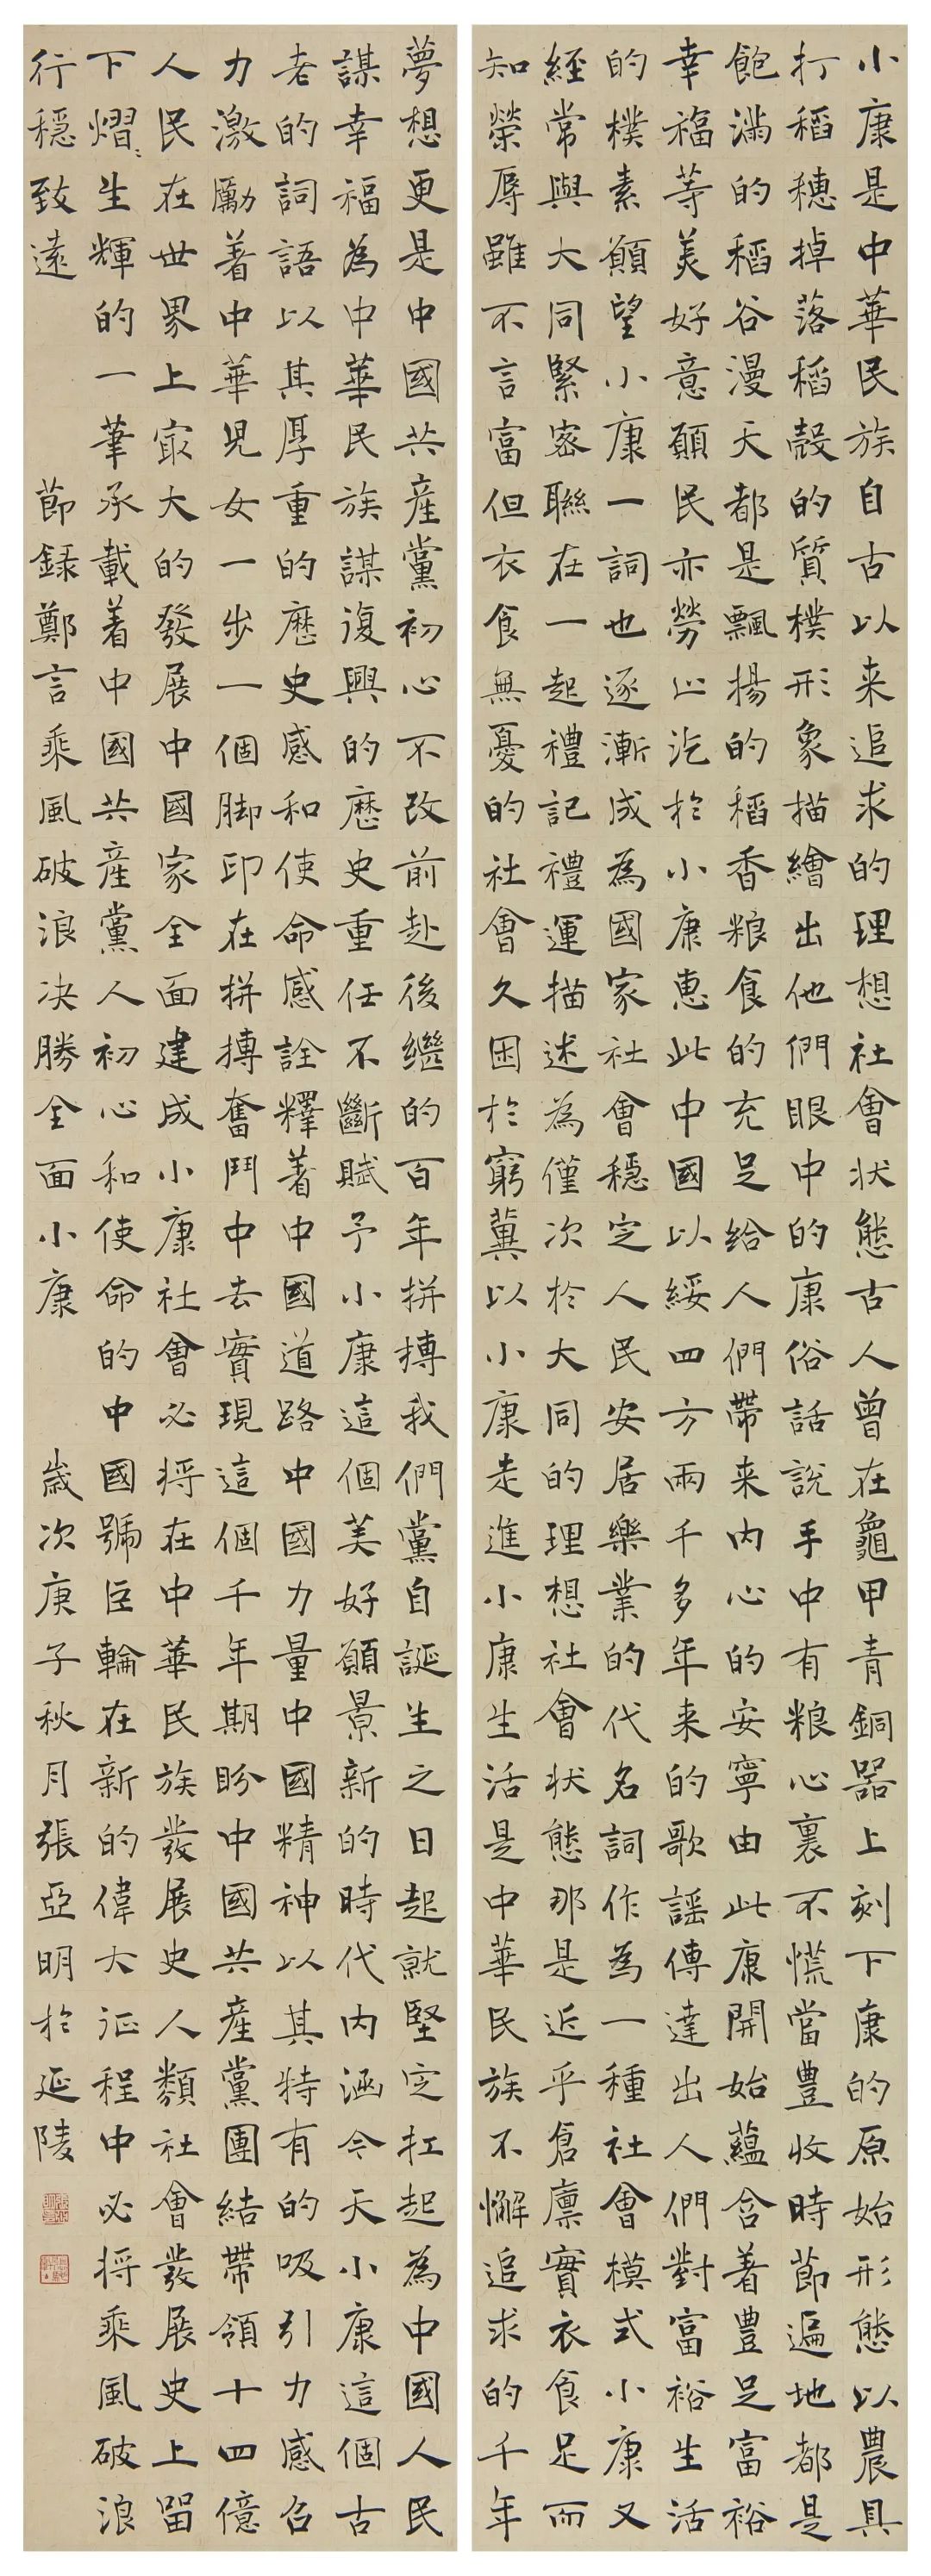 小康是中華民族自古以来追求的理想社會状態古人曾在龜甲青銅器上刻下康的原始形態以農具
打稻穗掉落稻殼的質樸形象描繪出他們眼中的康俗話説手中有粮心裏不慌當豊收時節遍地都是
飽滿的稻谷漫天都是飄揚的稻香粮食的充足給人們帶来内心的安寧由此康開始蘊含着豊足富裕
幸福等美好意願民亦勞止汔於小康惠此中國以綏四方兩千多年来的歌謡傳達出人們對富裕生活
的樸素願望小康一詞也逐漸成為國家社會穩定人民安居樂業的代名詞作為一種社會模式小康又
經常與大同緊密聯在一起禮記禮運描述為僅次於大同的理想社會状態那是近乎倉廪實衣食足而
知榮辱雖不言富但衣食無憂的社會久困於窮冀以小康走進小康生活是中華民族不懈追求的千年
夢想更是中國共産黨初心不改前赴後繼的百年拼搏我們黨自誕生之日起就堅定扛起為中國人民
謀幸福為中華民族謀復興的歷史重任不斷賦予小康這個美好願景新的時代内涵今天小康這個古
老的詞語以其厚重的歷史感和使命感詮釋著中國道路中國力量中國精神以其特有的吸引力感召
力激勵著中華兒女一步一個脚印在拼搏奮鬥中去實現這個千年期盼中國共産黨團結帶領十四億
人民在世界上最大的發展中國家全面建成小康社會必将在中華民族發展史人類社會發展史上留
下熠〻生輝的一筆承載着中國共産黨人初心和使命的中國號巨輪在新的偉大征程中必将乘風破浪
行穩致遠 節録鄭言乘風破浪决勝全面小康 歲次庚子秋月張亞明於延陵